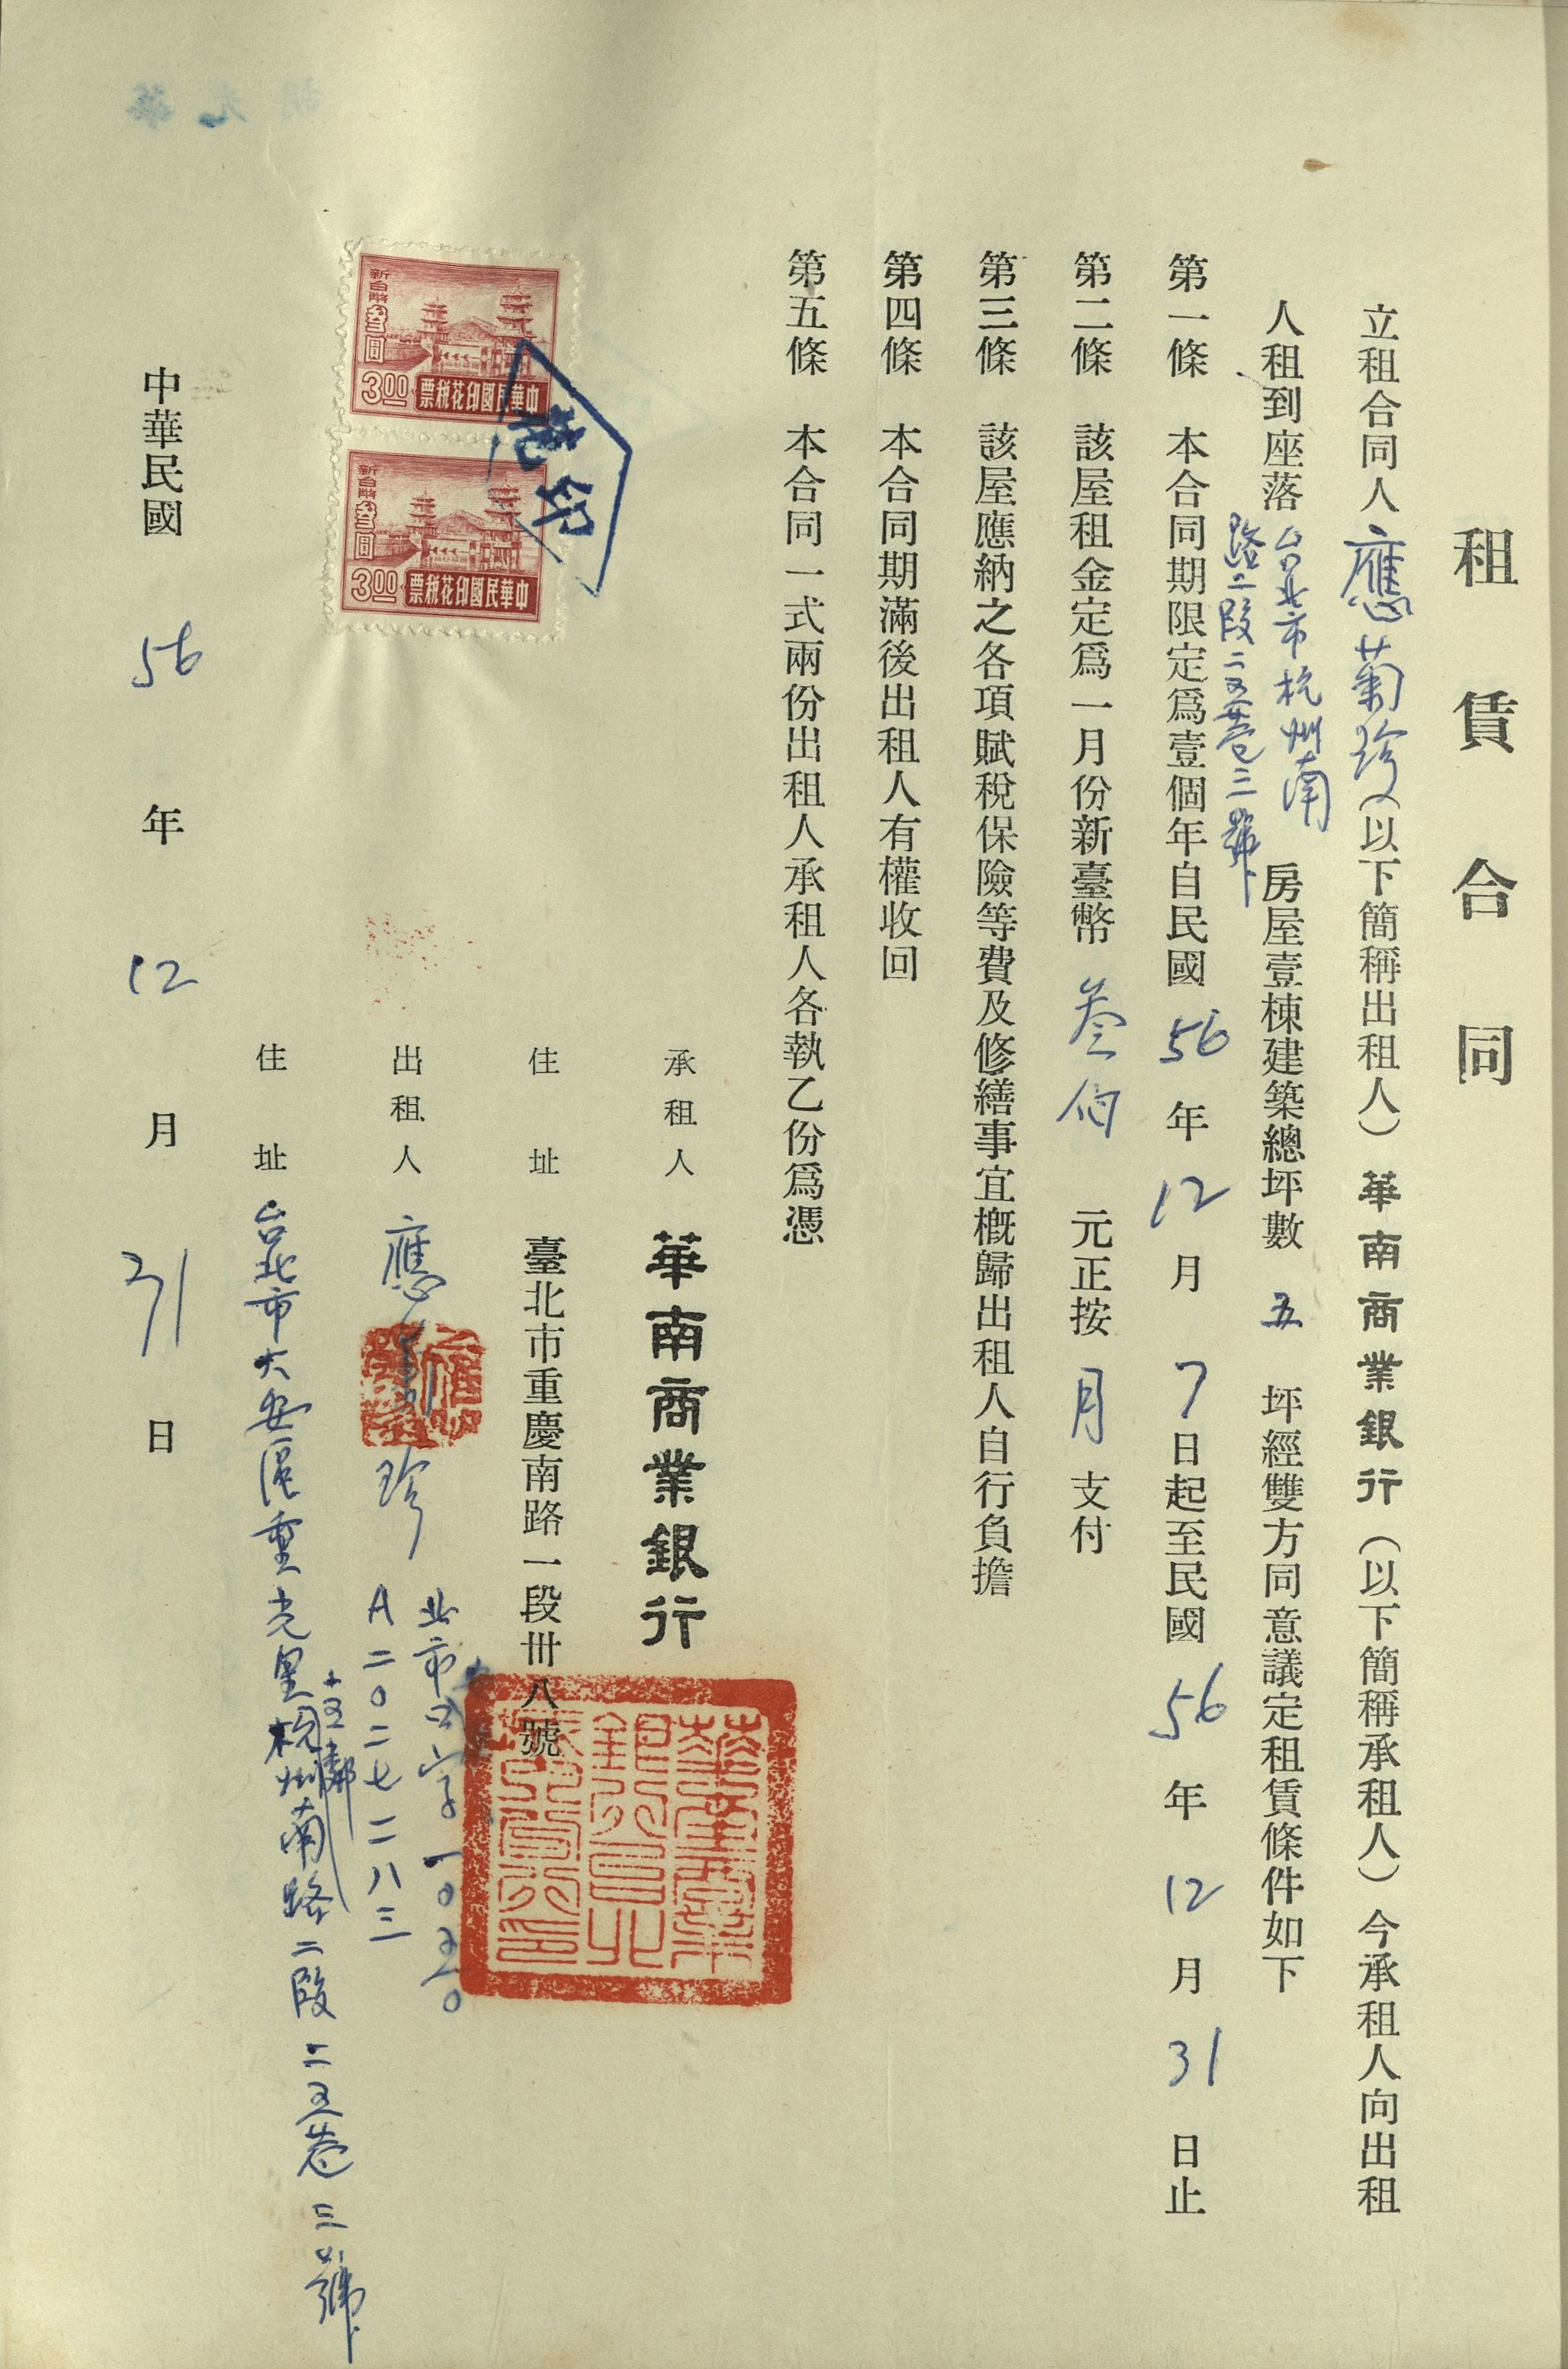 租賃合同
立租合同人應菊珍(以下簡稱出租人)華南商業銀行(以下簡稱承租人)今承租人向出租
人租到座落台北市杭州南路二段二五巷三號房屋壹棟建築總坪數五坪經雙方同意議定租賃條件如下
第一條 本合同期限定爲壹個年自民國56年12月7日起至民國56年12月31日止
第二條 該屋租金定爲一月份新臺幣叁佰元正按月支付
第三條 該屋應納之各項賦稅保險等費及修繕事宜概歸出租人自行負擔
第四條 本合同期滿後出租人有權收回
第五條 本合同一式兩份出租人承租人各執乙份爲憑
承租人 華南商業銀行
住址 臺北市重慶南路一段卅八號
出租人 應菊珍
北市 字一0五五0
A二0二七二八三
住址 台北市大安區重光里十五鄰杭州南路二段二五巷三號
新台幣叁圓
3.00
中華民國印花稅票
新台幣叁圓
3.00
中華民國印花稅票
中華民國56年12月31日